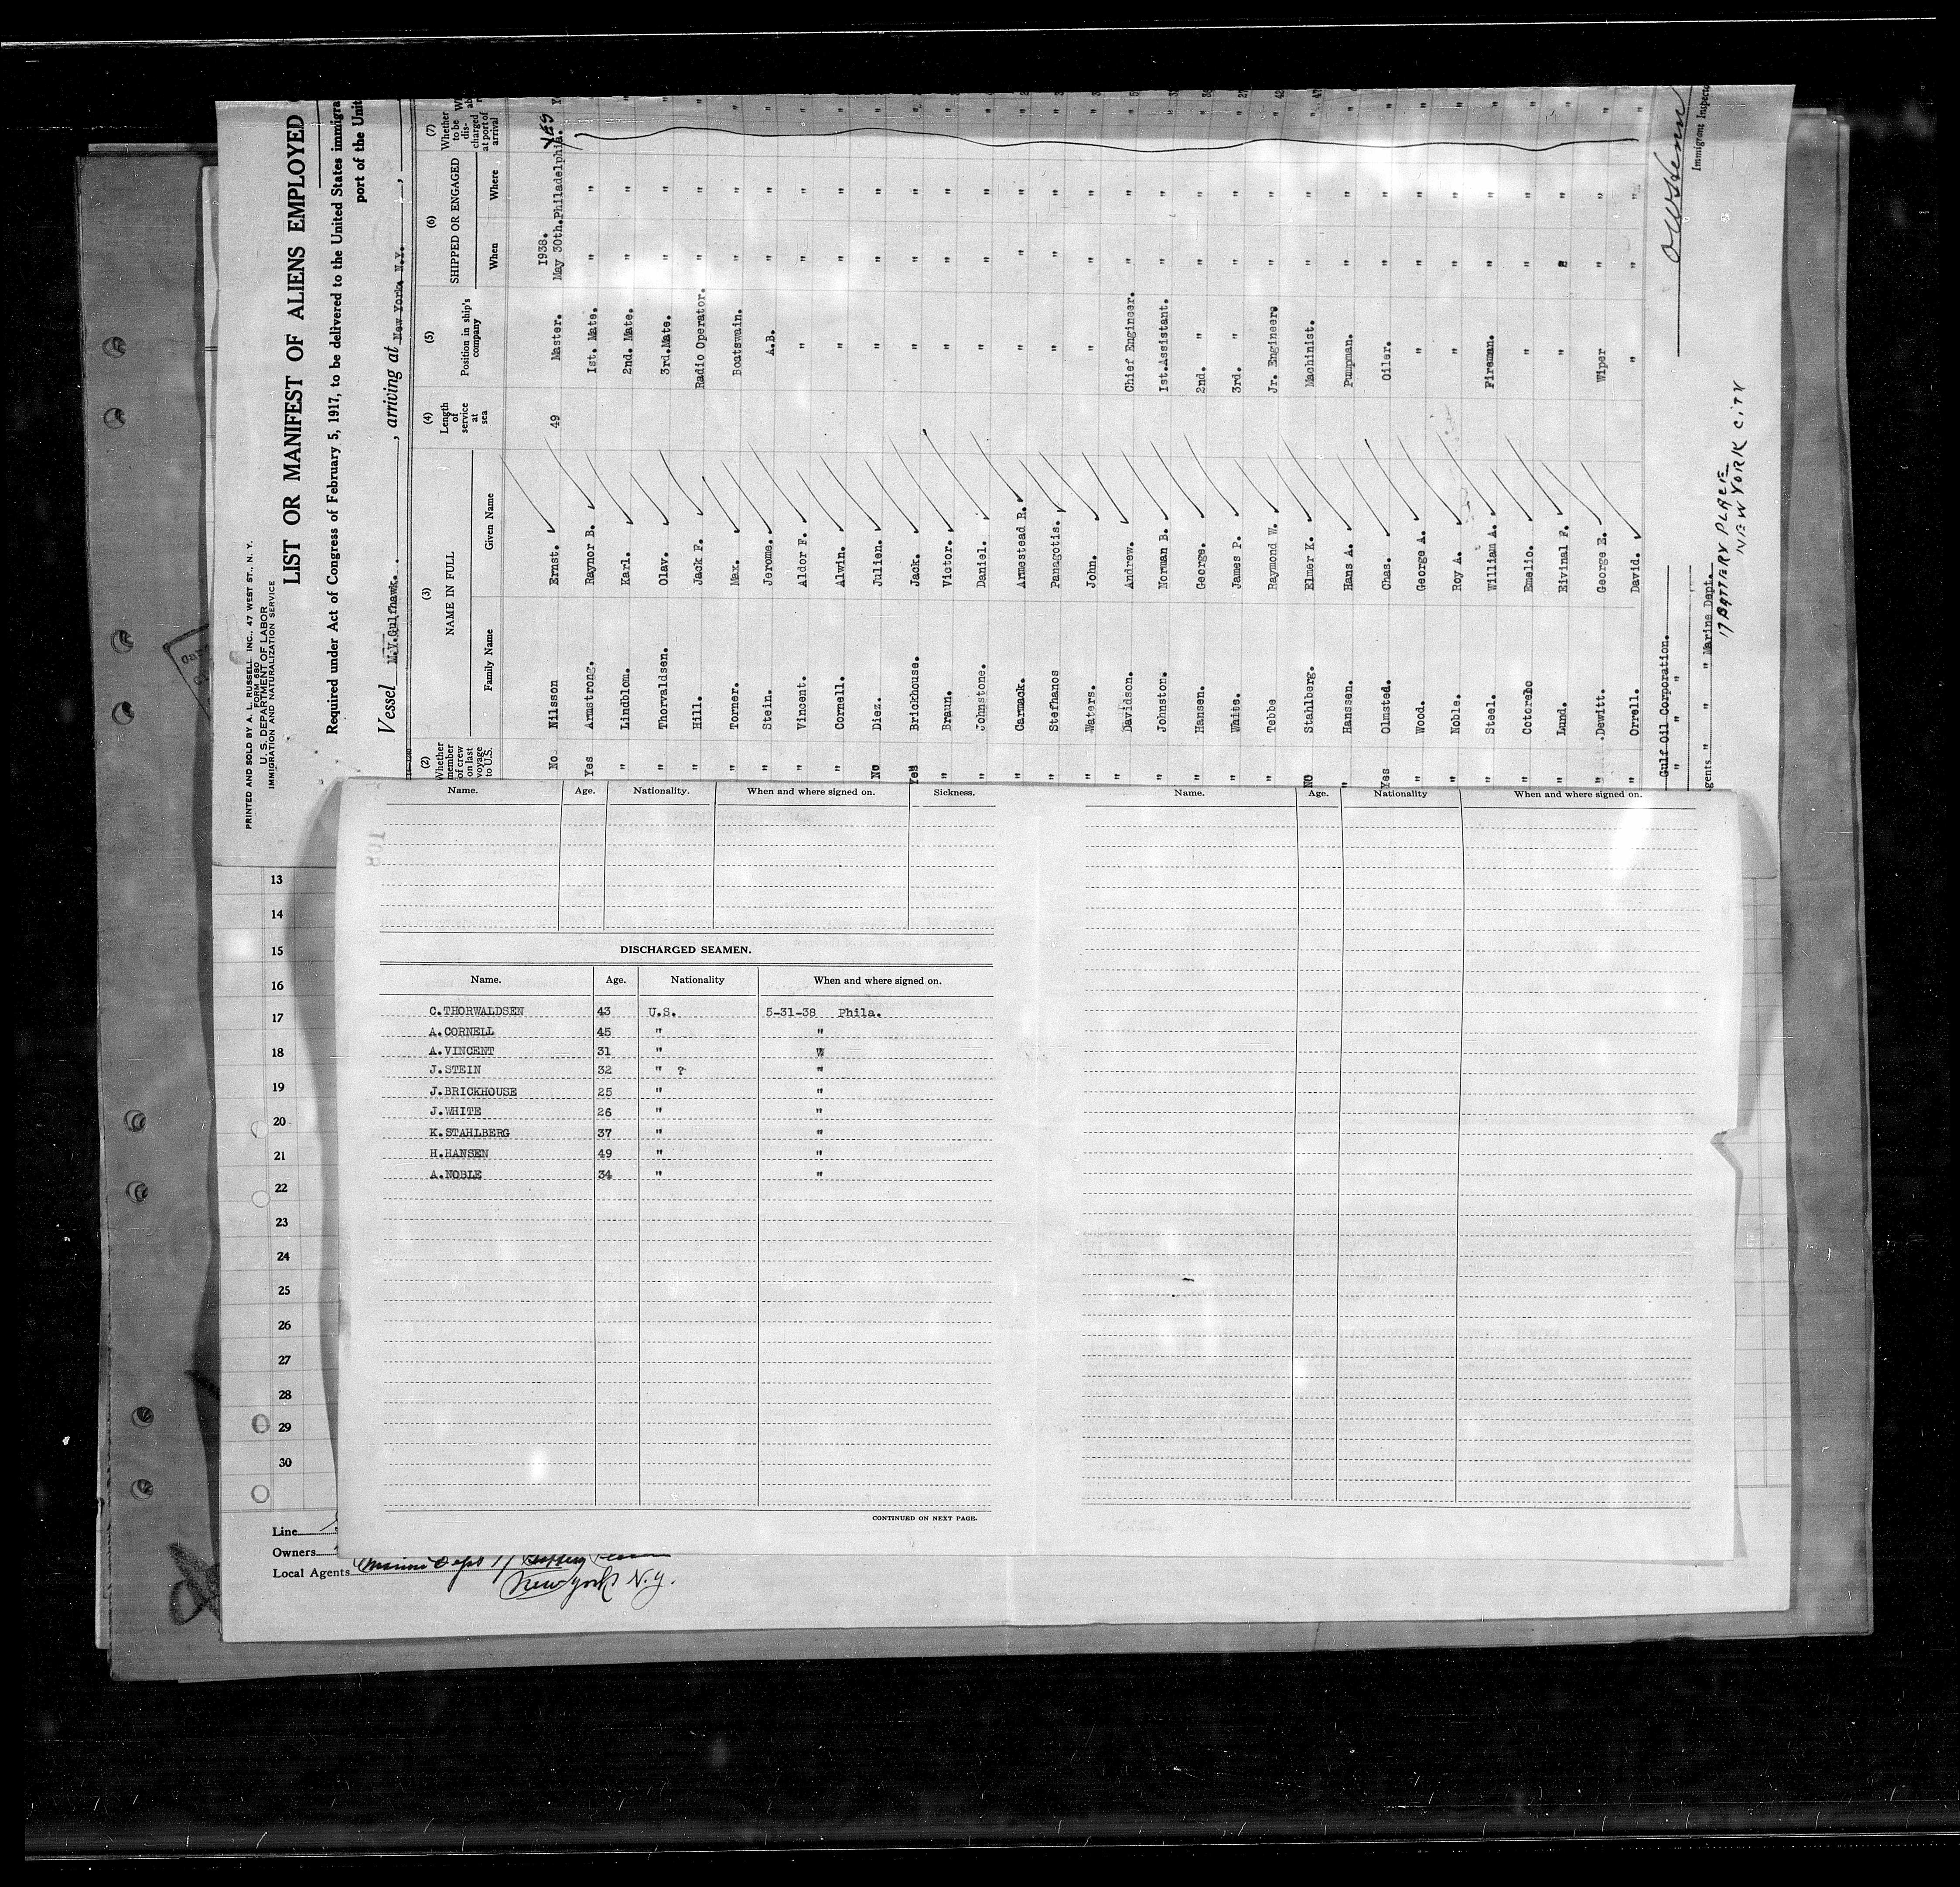 PRINTED AND SOLD BY A. L. RUSSELL INC., 47 WEST ST., N. Y.
FORM 680
U. S. DEPARTMENT OF LABOR
IMMIGRATION AND NATURALIZATION SERVICE
LIST OR MANIFEST OF ALIENS EMPLOYED
Required under Act of Congress of February 5, 1917, to be delivered to the United States immigra
port of the Unit
Vessel M.V.Gulfhawk. , arriving at New York N.Y. ,
(2) Whether member of crew on last voyage to U.S. (3) NAME IN FULL Family Name Given Name (4) Length of service at sea (5) Position in ship's company (6) SHIPPED OR ENGAGED When Where (7) Whether to be discharged at port of arrival
1938.
No Nilsson Ernst. 49 Master. May 30th. Philadelphia. YES
Yes Armstrong. Raynor B. 1st. Mate. " "
" Lindblom. Karl. 2nd. Mate. " "
" Thorvaldsen. Olav. 3rd.Mate. " "
" Hill. Jack F. Radio Operator. " "
" Torner. Max. Boatswain. " "
" Stein. Jerome. A.B. " "
" Vincent. Aldor F. " " "
" Cornell. Alwin. " " "
No Diez. Julien. " " "
Yes Brickhouse. Jack. " " "
" Braun. Victor. " " "
" Johnstone. Daniel. " " "
" Carmack. Armestead R. " " "
" Stefhanos Panagotis. " " "
" Waters. John. " " "
" Davidson. Andrew. Chief Engineer. " "
" Johnston. Norman B. 1st.Assistant. " "
" Hansen. George. 2nd. " " "
" White. James P. 3rd. " " "
" Tebbe Raymond W. Jr. Engineers " "
No Stahlberg. Elmer K. Machinist. " "
" Hanssen. Hans A. Pumpman. " "
Yes Olmsted. Chas. Oiler. " "
" Wood. George A. " " "
" Noble. Roy A. " " "
" Steel. William A. Fireman. " "
" Cotorelo Emelio. " " "
" Lund. Eivinal F. " " "
" Dewitt. George E. Wiper " "
" Orrell. David. " " "
Gulf Oil Corporation.
" " "
gents " " " Marine Dept.
17 BATTERY PLACE
NEW YORK CITY
Immigrant Inspecto
Name. Age. Nationality. When and where signed on. Sickness.
DISCHARGED SEAMEN.
Name. Age. Nationality When and where signed on.
C.THORWALDSEN 43 U.S. 5-31-38 Phila.
A.CORNELL 45 " "
A.VINCENT 31 " W
J.STEIN 32 " ? "
J.BRICKHOUSE 25 " "
J.WHITE 26 " "
K.STAHLBERG 37 " "
H.HANSEN 49 " "
A.NOBLE 34 " "
CONTINUED ON NEXT PAGE.
Name. Age. Nationality When and where signed on.
13
14
15
16
17
18
19
20
21
22
23
24
25
26
27
28
29
30
Line
Owners
Local Agents Marine Dept 17 Battery Place
New York N.Y.